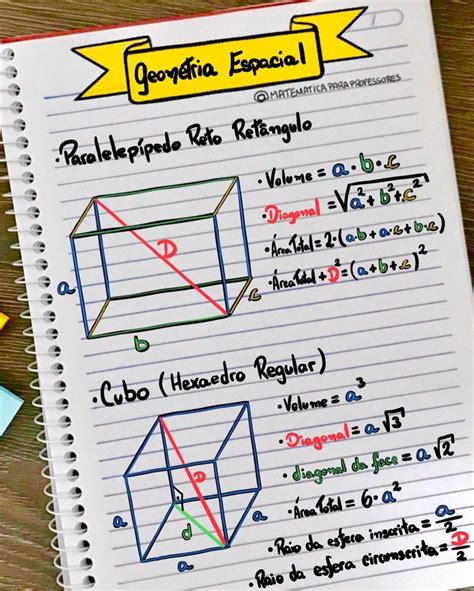 Geometria Espacial
@MATEMATICAPARAPROFESSORES
• Paralelepípedo Reto Retângulo
• Volume = a · b · c
• Diagonal = √a² + b² + c²
• Área Total = 2 · (a·b + a·c + b·c)
• Área Total + D² = (a + b + c)²
D
a
b
c
• Cubo (Hexaedro Regular)
• Volume = a³
• Diagonal = a √3
• diagonal da face = a √2
• Área Total = 6 · a²
• Raio da esfera inscrita = a/2
• Raio da esfera circunscrita = D/2
D
a
d
a
a